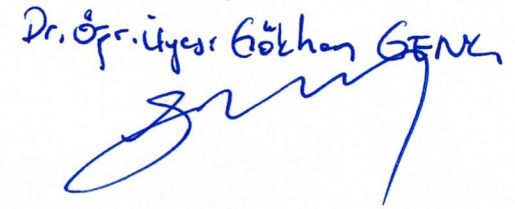 Dr. Öğr. Üyesi Gökhan GENÇ